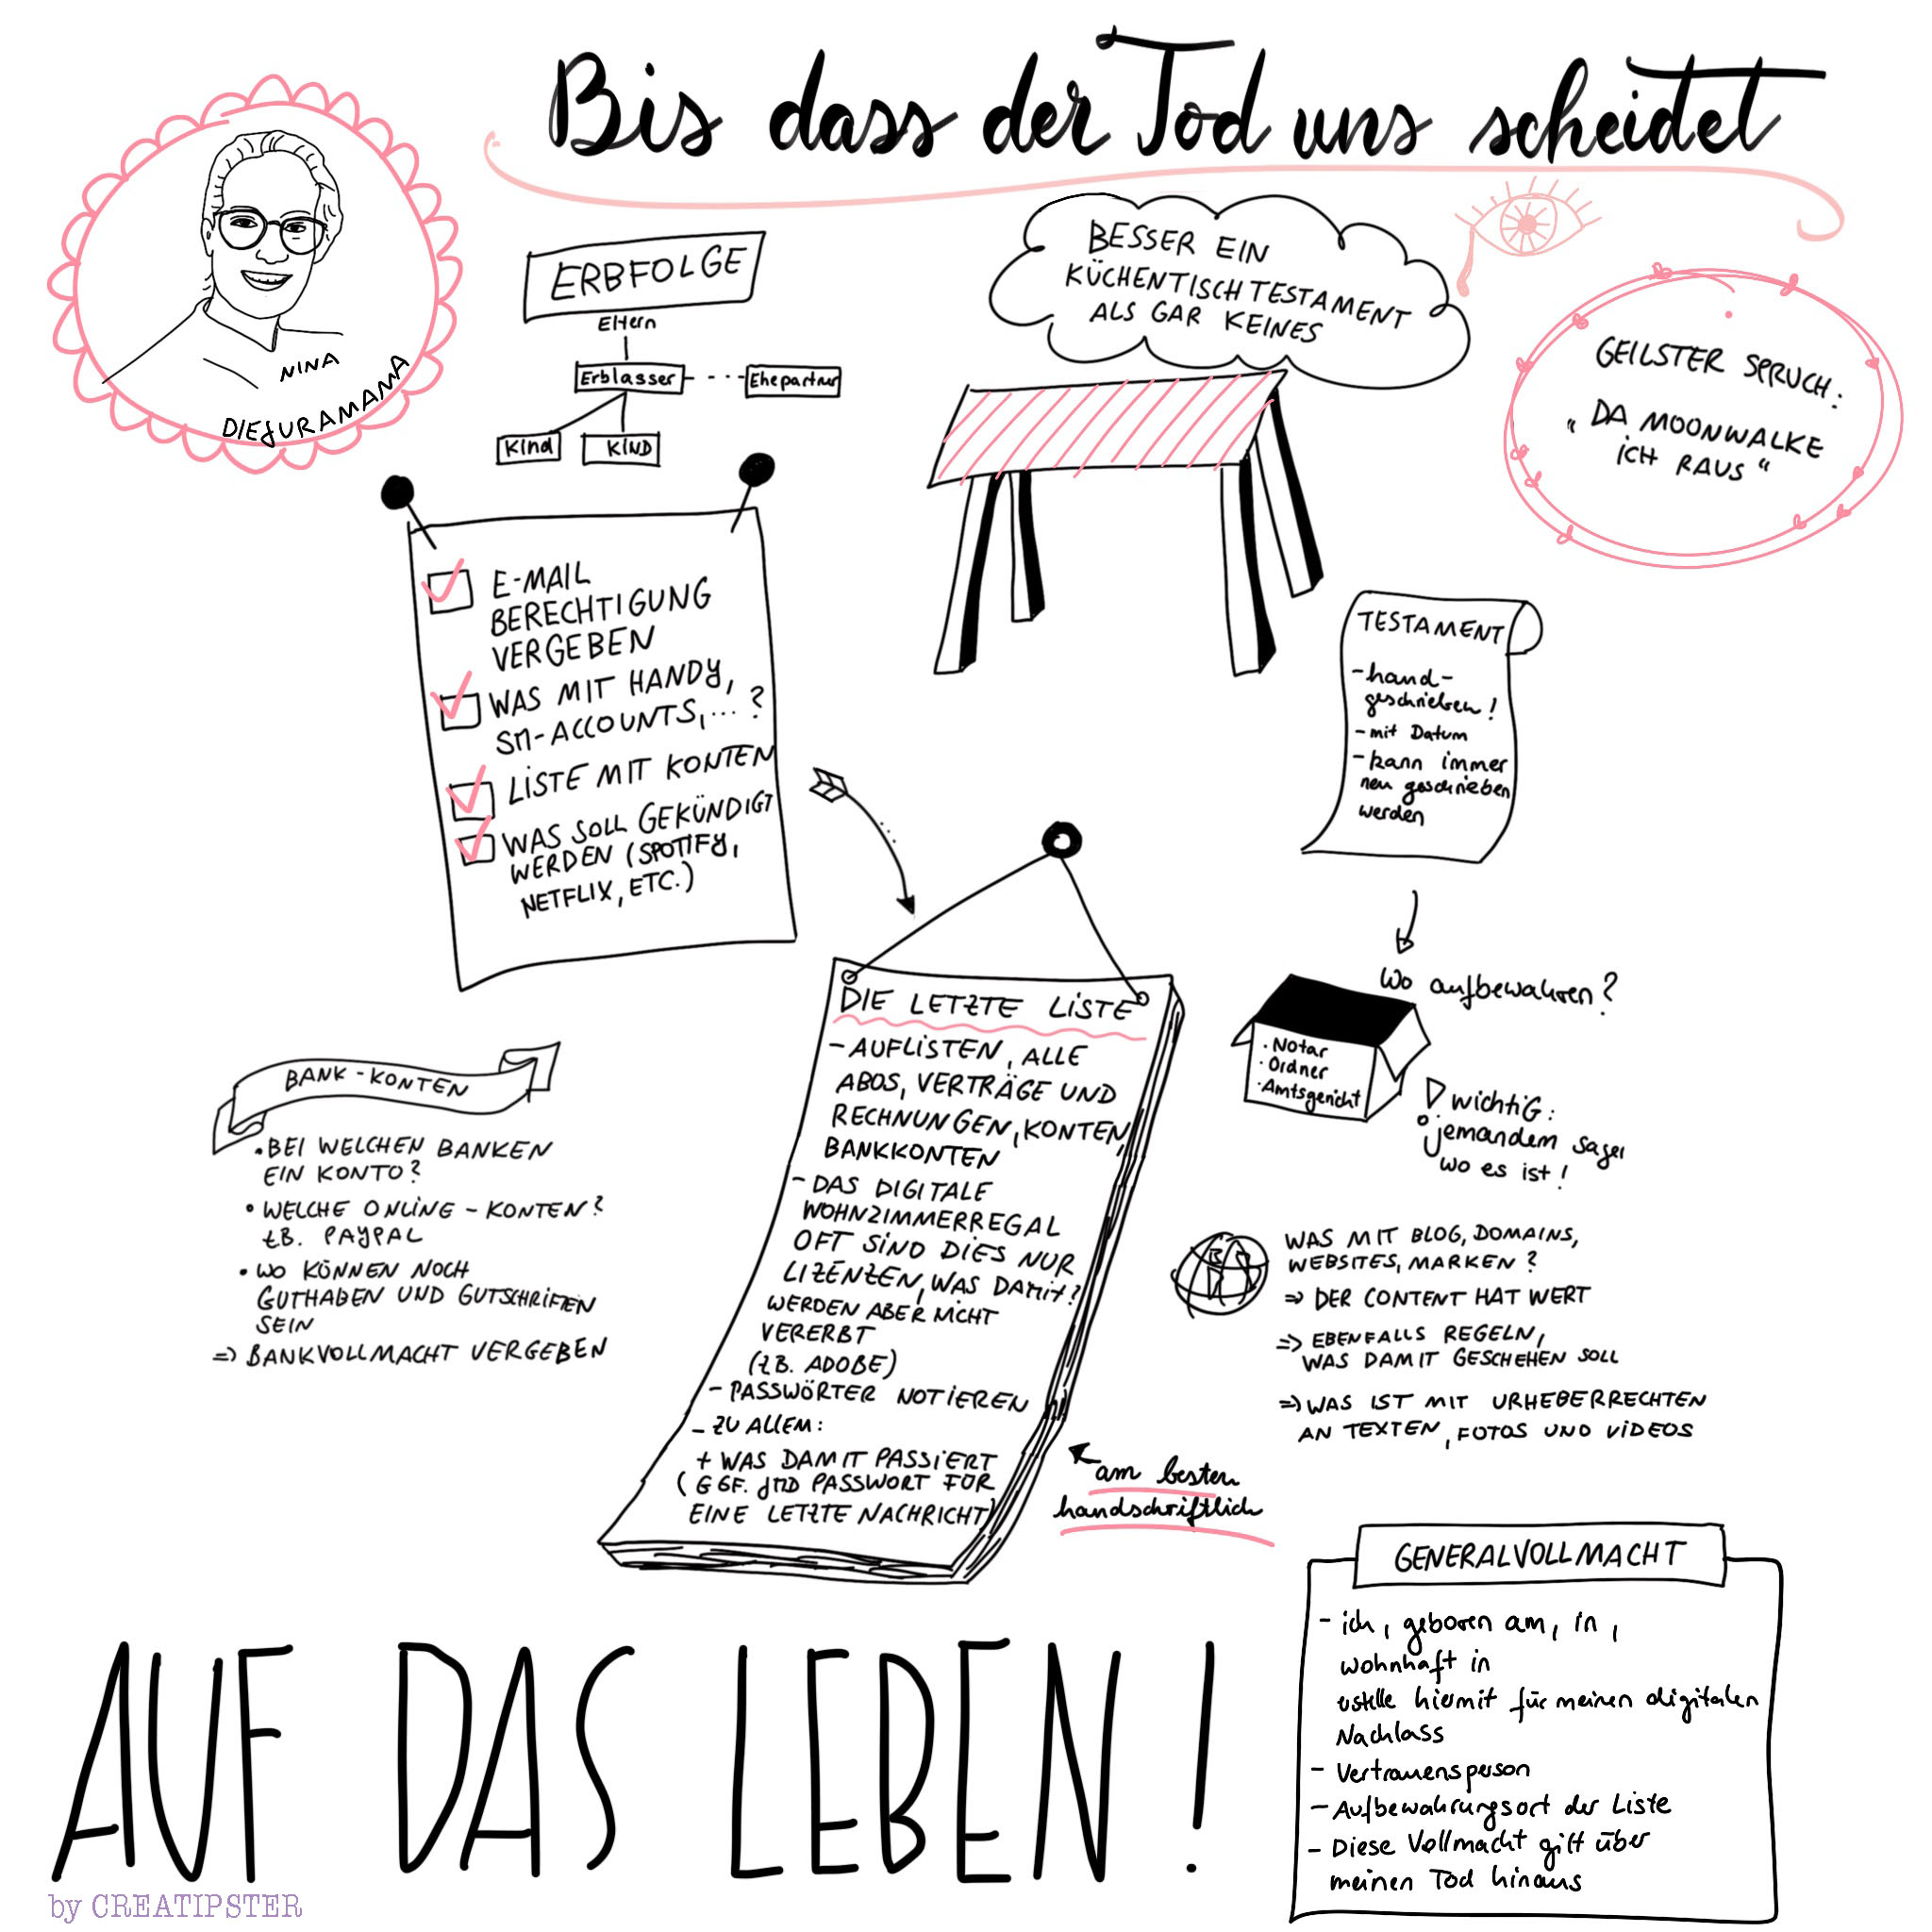 Bis dass der Tod uns scheidet
NINA
DIEJURAMAMA
ERBFOLGE
Eltern
Erblasser
Ehepartner
Kind
KIND
BESSER EIN
KÜCHENTISCHTESTAMENT
ALS GAR KEINES
GEILSTER SPRUCH:
"DA MOONWALKE
ICH RAUS"
E-MAIL
BERECHTIGUNG
VERGEBEN
WAS MIT HANDY,
SM-ACCOUNTS,...?
LISTE MIT KONTEN
WAS SOLL GEKÜNDIGT
WERDEN (SPOTIFY,
NETFLIX, ETC.)
TESTAMENT
-hand-
geschrieben!
-mit Datum
-kann immer
neu geschrieben
werden
Wo aufbewahren?
·Notar
·Ordner
·Amtsgericht
wichtiG:
jemandem sagen
wo es ist!
BANK-KONTEN
•BEI WELCHEN BANKEN
EIN KONTO?
•WELCHE ONLINE-KONTEN?
z.B. PAYPAL
•WO KÖNNEN NOCH
GUTHABEN UND GUTSCHRIFTEN
SEIN
=> BANKVOLLMACHT VERGEBEN
DIE LETZTE LISTE
- AUFLISTEN, ALLE
ABOS, VERTRÄGE UND
RECHNUNGEN, KONTEN,
BANKKONTEN
- DAS DIGITALE
WOHNZIMMERREGAL
OFT SIND DIES NUR
LIZENZEN, WAS DAMIT?
WERDEN ABER NICHT
VERERBT
(z.B. ADOBE)
- PASSWÖRTER NOTIEREN
- ZU ALLEM:
+ WAS DAMIT PASSIERT
(GGF. JMD PASSWORT FÜR
EINE LETZTE NACHRICHT)
am besten
handschriftlich
WAS MIT BLOG, DOMAINS,
WEBSITES, MARKEN?
=> DER CONTENT HAT WERT
=> EBENFALLS REGELN,
WAS DAMIT GESCHEHEN SOLL
=> WAS IST MIT URHEBERRECHTEN
AN TEXTEN, FOTOS UND VIDEOS
GENERALVOLLMACHT
- ich, geboren am, in,
wohnhaft in
hiermit für meinen digitalen
Nachlass
- Vertrauensperson
- Aufbewahrungsort der Liste
- Diese Vollmacht gilt über
meinen Tod hinaus
AUF DAS LEBEN!
by CREATIPSTER